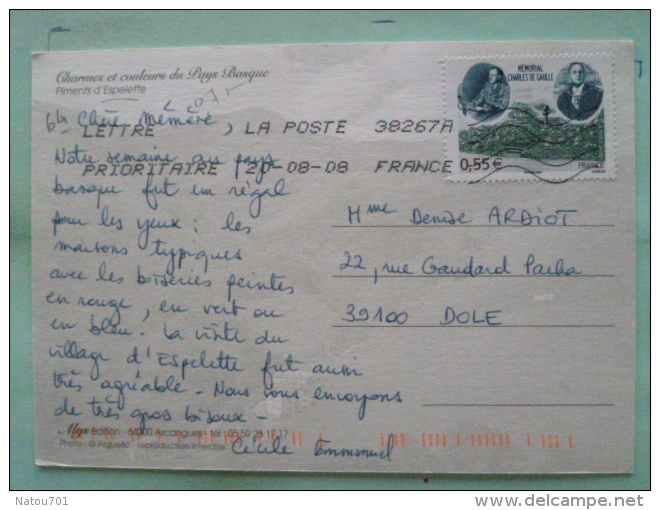 Charmes et couleurs du Pays Basque
Piments d'Espelette
MÉMORIAL
CHARLES DE GAULLE
0,55€
FRANCE
LETTRE
PRIORITAIRE
LA POSTE 38267A
20-08-08 FRANCE
Chère Mémère,
Notre semaine au pays
basque fut un régal
pour les yeux : les
maisons typiques
avec les boiseries peintes
en rouge, en vert ou
en bleu. La visite du
village d'Espelette fut aussi
très agréable. Nous vous envoyons
de très gros bisoux -
Cécile Emmanuel
Mme Denise ARDIOT
22, rue Gaudard Pacha
39100 DOLE
Mys Edition - 64200 Arcangues - Tél : 05 59 23 17 17
Photo : © Arguello - reproduction interdite
Natou701
delcampe.net